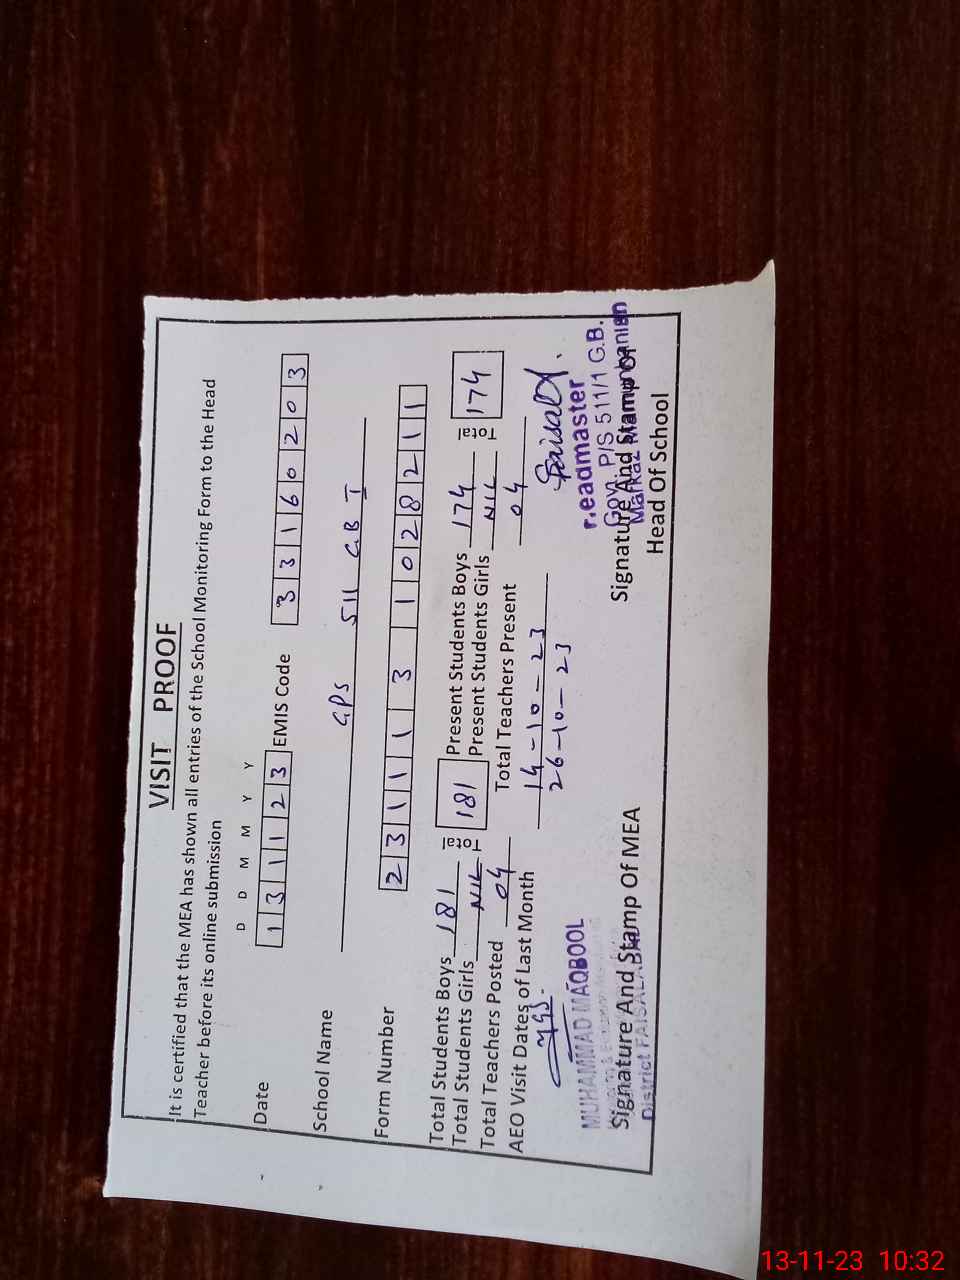 VISIT PROOF
It is certified that the MEA has shown all entries of the School Monitoring Form to the Head
Teacher before its online submission
D D M M Y Y
Date 1 3 1 1 2 3 EMIS Code 3 3 1 6 0 2 0 3
School Name GPS 511 GB I
Form Number 2 3 1 1 1 3 1 0 2 8 2 1 1
Total Students Boys 181 Total 181 Present Students Boys 174 Total 174
Total Students Girls NIL Present Students Girls NIL
Total Teachers Posted 04 Total Teachers Present 04
AEO Visit Dates of Last Month 14-10-23
26-10-23
Faisal
MUHAMMAD MAQBOOL
District FAISALABAD
Signature And Stamp Of MEA
r.eadmaster
Govt. P/S 511/1 G.B.
Markaz
Signature And Stamp Of
Head Of School
13-11-23 10:32